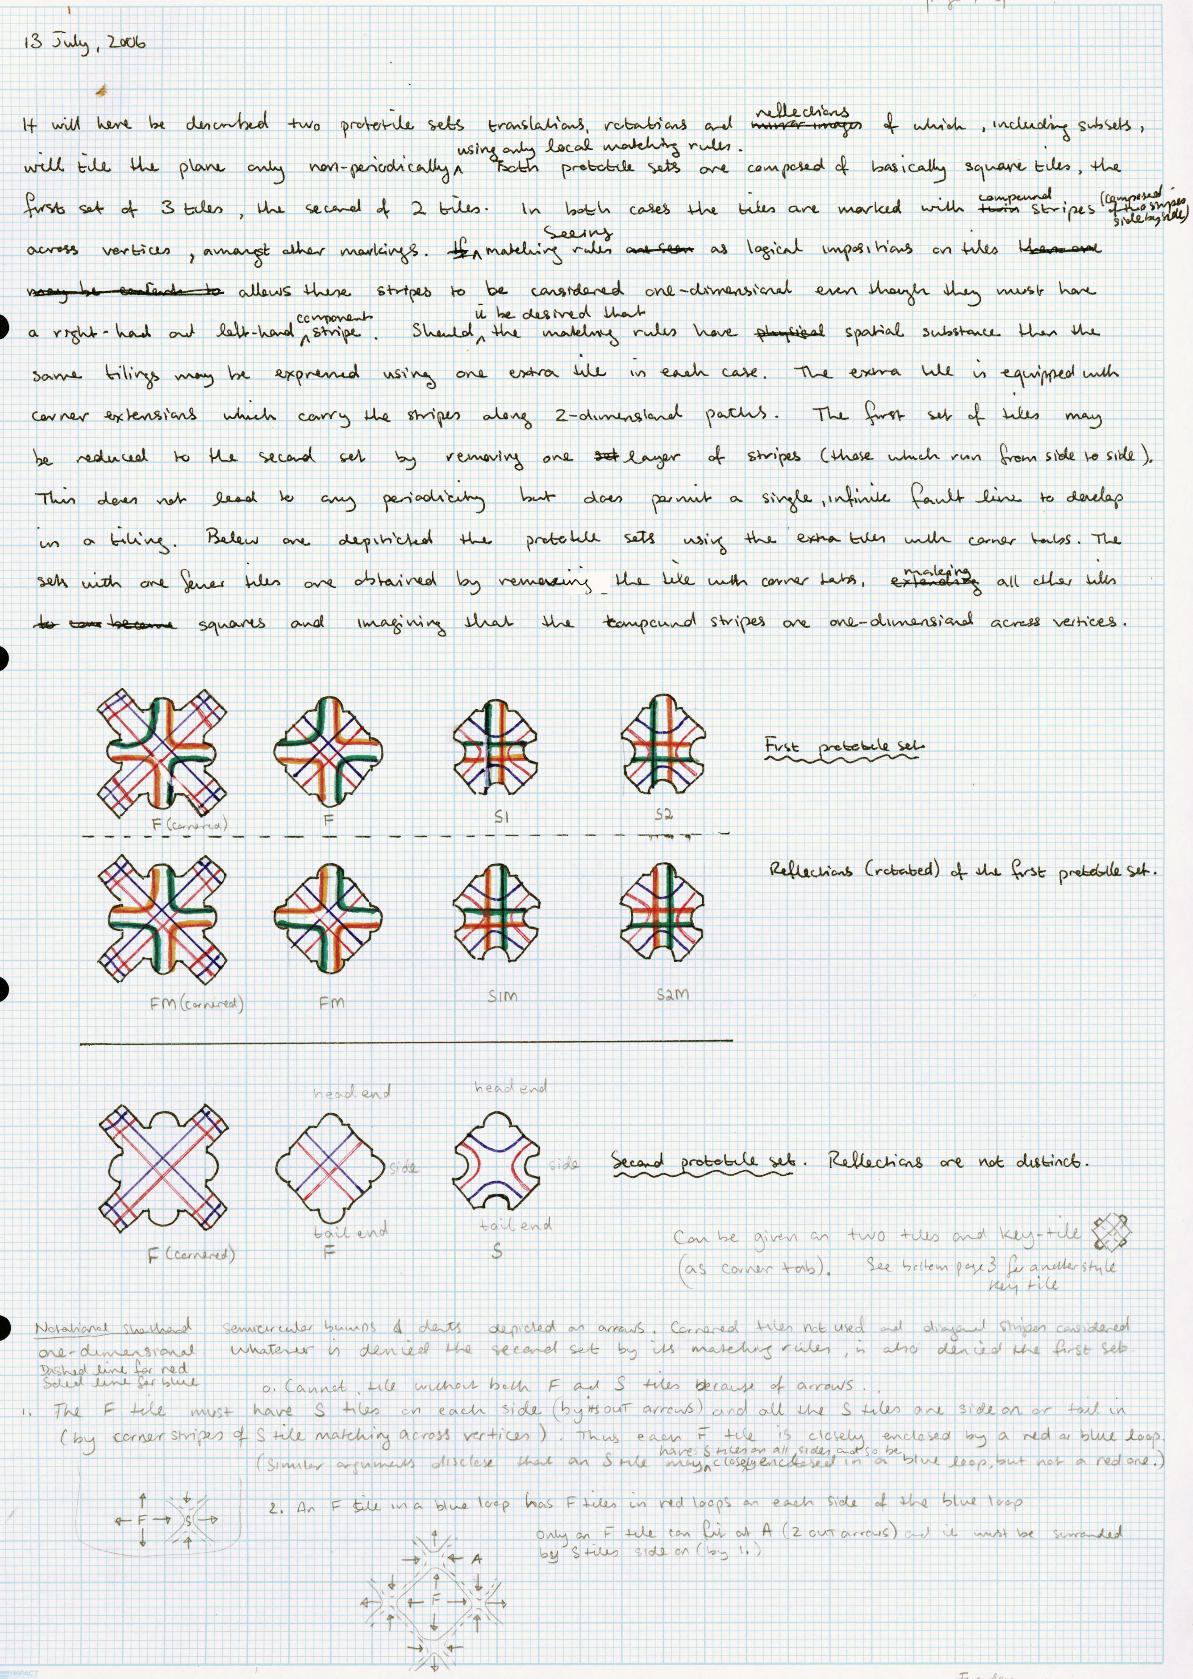 13 July, 2006
It will here be described two prototile sets translations, rotations and mirror images reflections of which, including subsets,
will tile the plane only non-periodically using only local matching rules. Both prototile sets are composed of basically square tiles, the
first set of 3 tiles, the second of 2 tiles. In both cases the tiles are marked with twin compound stripes (composed of two stripes side by side)
across vertices, amongst other markings. If Seeing matching rules are seen as logical impositions on tiles then one
may be contends to allows these stripes to be considered one-dimensional even though they must have
a right-had out left-hand component stripe. Should it be desired that the matching rules have physical spatial substance then the
same tilings may be expressed using one extra tile in each case. The extra tile is equipped with
corner extensions which carry the stripes along 2-dimensional paths. The first set of tiles may
be reduced to the second set by removing one set layer of stripes (those which run from side to side).
This does not lead to any periodicity but does permit a single, infinite fault line to develop
in a tiling. Below are depiticted the prototile sets using the extra tiles with corner tabs. The
sets with one fewer tiles are obtained by removing the tile with corner tabs, extending making all other tiles
to become squares and imagining that the compound stripes are one-dimensional across vertices.
First prototile set
F (cornered)
F
S1
S2
Reflections (rotated) of the first prototile set.
FM (cornered)
FM
S1M
S2M
head end
head end
side
side
Second prototile set. Reflections are not distinct.
tail end
tail end
F (cornered)
F
S
Can be given as two tiles and key-tile
(as corner tab). See bottom page 3 for another style
key tile
Notational shorthand semicircular bumps & dents depicted as arrows. Cornered tiles not used and diagonal stripes considered
one-dimensional Whatever is denied the second set by its matching rules, is also denied the first set.
Dashed line for red
Solid line for blue
0. Cannot tile without both F and S tiles because of arrows.
1. The F tile must have S tiles on each side (by its out arrows) and all the S tiles are side on or tail in
(by corner stripes of S tile matching across vertices). Thus each F tile is closely enclosed by a red or blue loop.
(Similar arguments disclose that an S tile may have S tiles on all sides and so be closely enclosed in a blue loop, but not a red one.)
F
S
2. An F tile in a blue loop has F tiles in red loops on each side of the blue loop
Only an F tile can fit at A (2 out arrows) and it must be surrounded
by S tiles side on (by 1.)
A
F
IMPACT